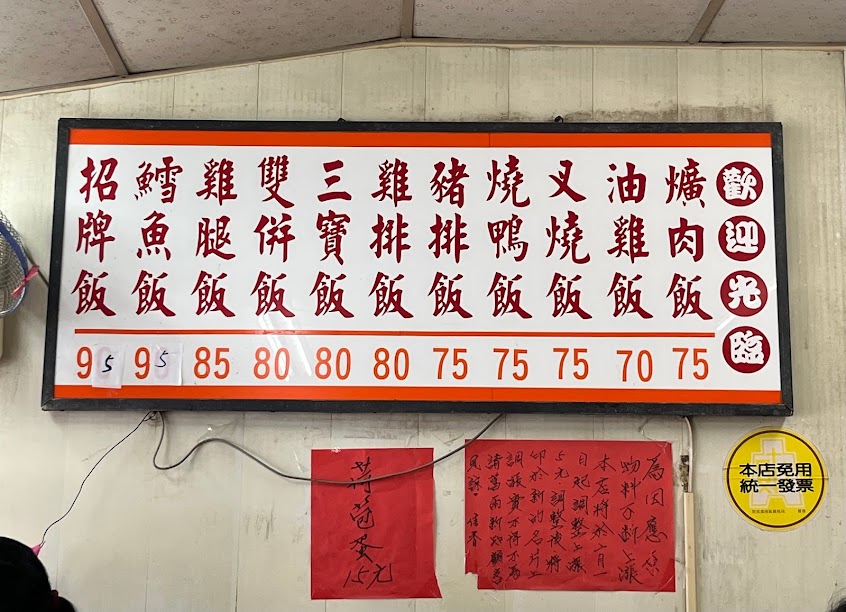 歡迎光臨
爌肉飯 75
油雞飯 70
叉燒飯 75
燒鴨飯 75
豬排飯 75
雞排飯 80
三寶飯 80
雙併飯 80
雞腿飯 85
鱈魚飯 95
招牌飯 95
為因應
物料不斷上漲
本店將於
日起調整上漲
5元,調整後將
印於新的名片上
荷苞蛋15元
本店免用
統一發票